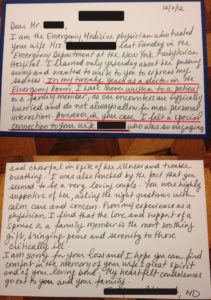 12/2/12
Dear Mr.
I am the Emergency Medicine physician who treated
your wife Mrs. last Sunday in the
Emergency Department at the New York Presbyterian
Hospital. I learned only yesterday about her passing
away and wanted to write to you to express my
sadness. In my twenty years as a doctor in the
Emergency Room, I have never written to a patient
or a family member, as our encounters are typically
hurried and do not always allow for more personal
interaction. However, in your case, I felt a special
connection to your wife who was so engaging
and cheerful in spite of her illness and trouble
breathing. I was also touched by the fact that you
seemed to be a very loving couple. You were highly
supportive of her, asking the right questions with
calm, care and concern. From my experience as a
physician, I find that the love and support of a
spouse or a family member is the most soothing
gift, bringing peace and serenity to those
critically ill.
I am sorry for your loss and I hope you can find
comfort in the memory of your wife's great spirit
and of your loving bond. My heartfelt condolences
go out to you and your family.
MD